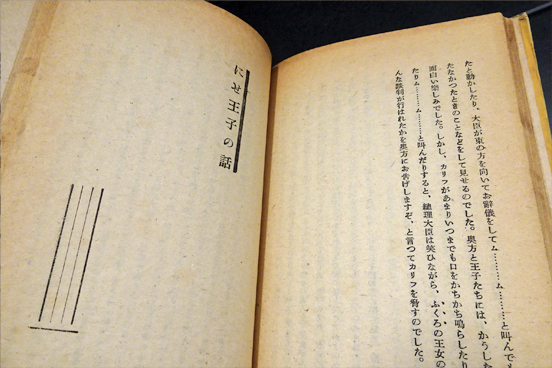 たと動かしたり、大臣が東の方を向いてお辭儀をしてム………ム………と叫んでも
たなかつたときのことなどをして見せるのでした。奥方と王子たちには、かうした
面白い樂しみでした。しかし、カリフがあまりいつまでも口をかちかち鳴らしたり
たりム………ム………と叫んだりすると、總理大臣は笑ひながら、ふくろの王女の
んな談判が行はれたかを奥方にお告げしますぞ、と言つてカリフを脅すのでした。
にせ王子の話